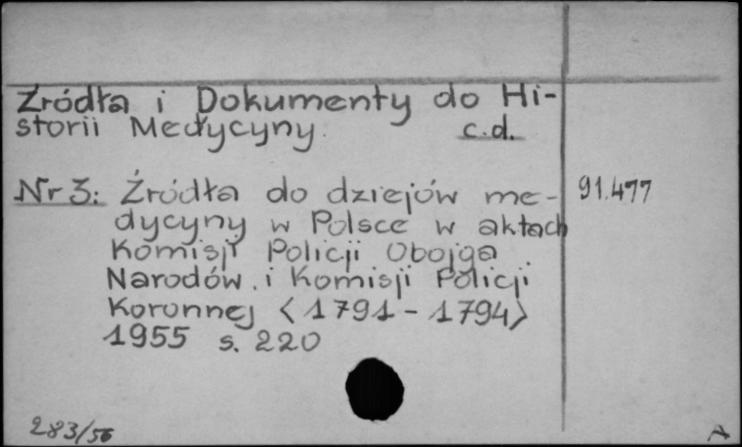 Źródła i Dokumenty do Hi-
storii Medycyny. c.d.
Nr 3: Źródła do dziejów me- 91.477
dycyny w Polsce w aktach
Komisji Policji Obojga
Narodów i Komisji Policji
Koronnej <1791-1794>
1955 s. 220
283/56 A